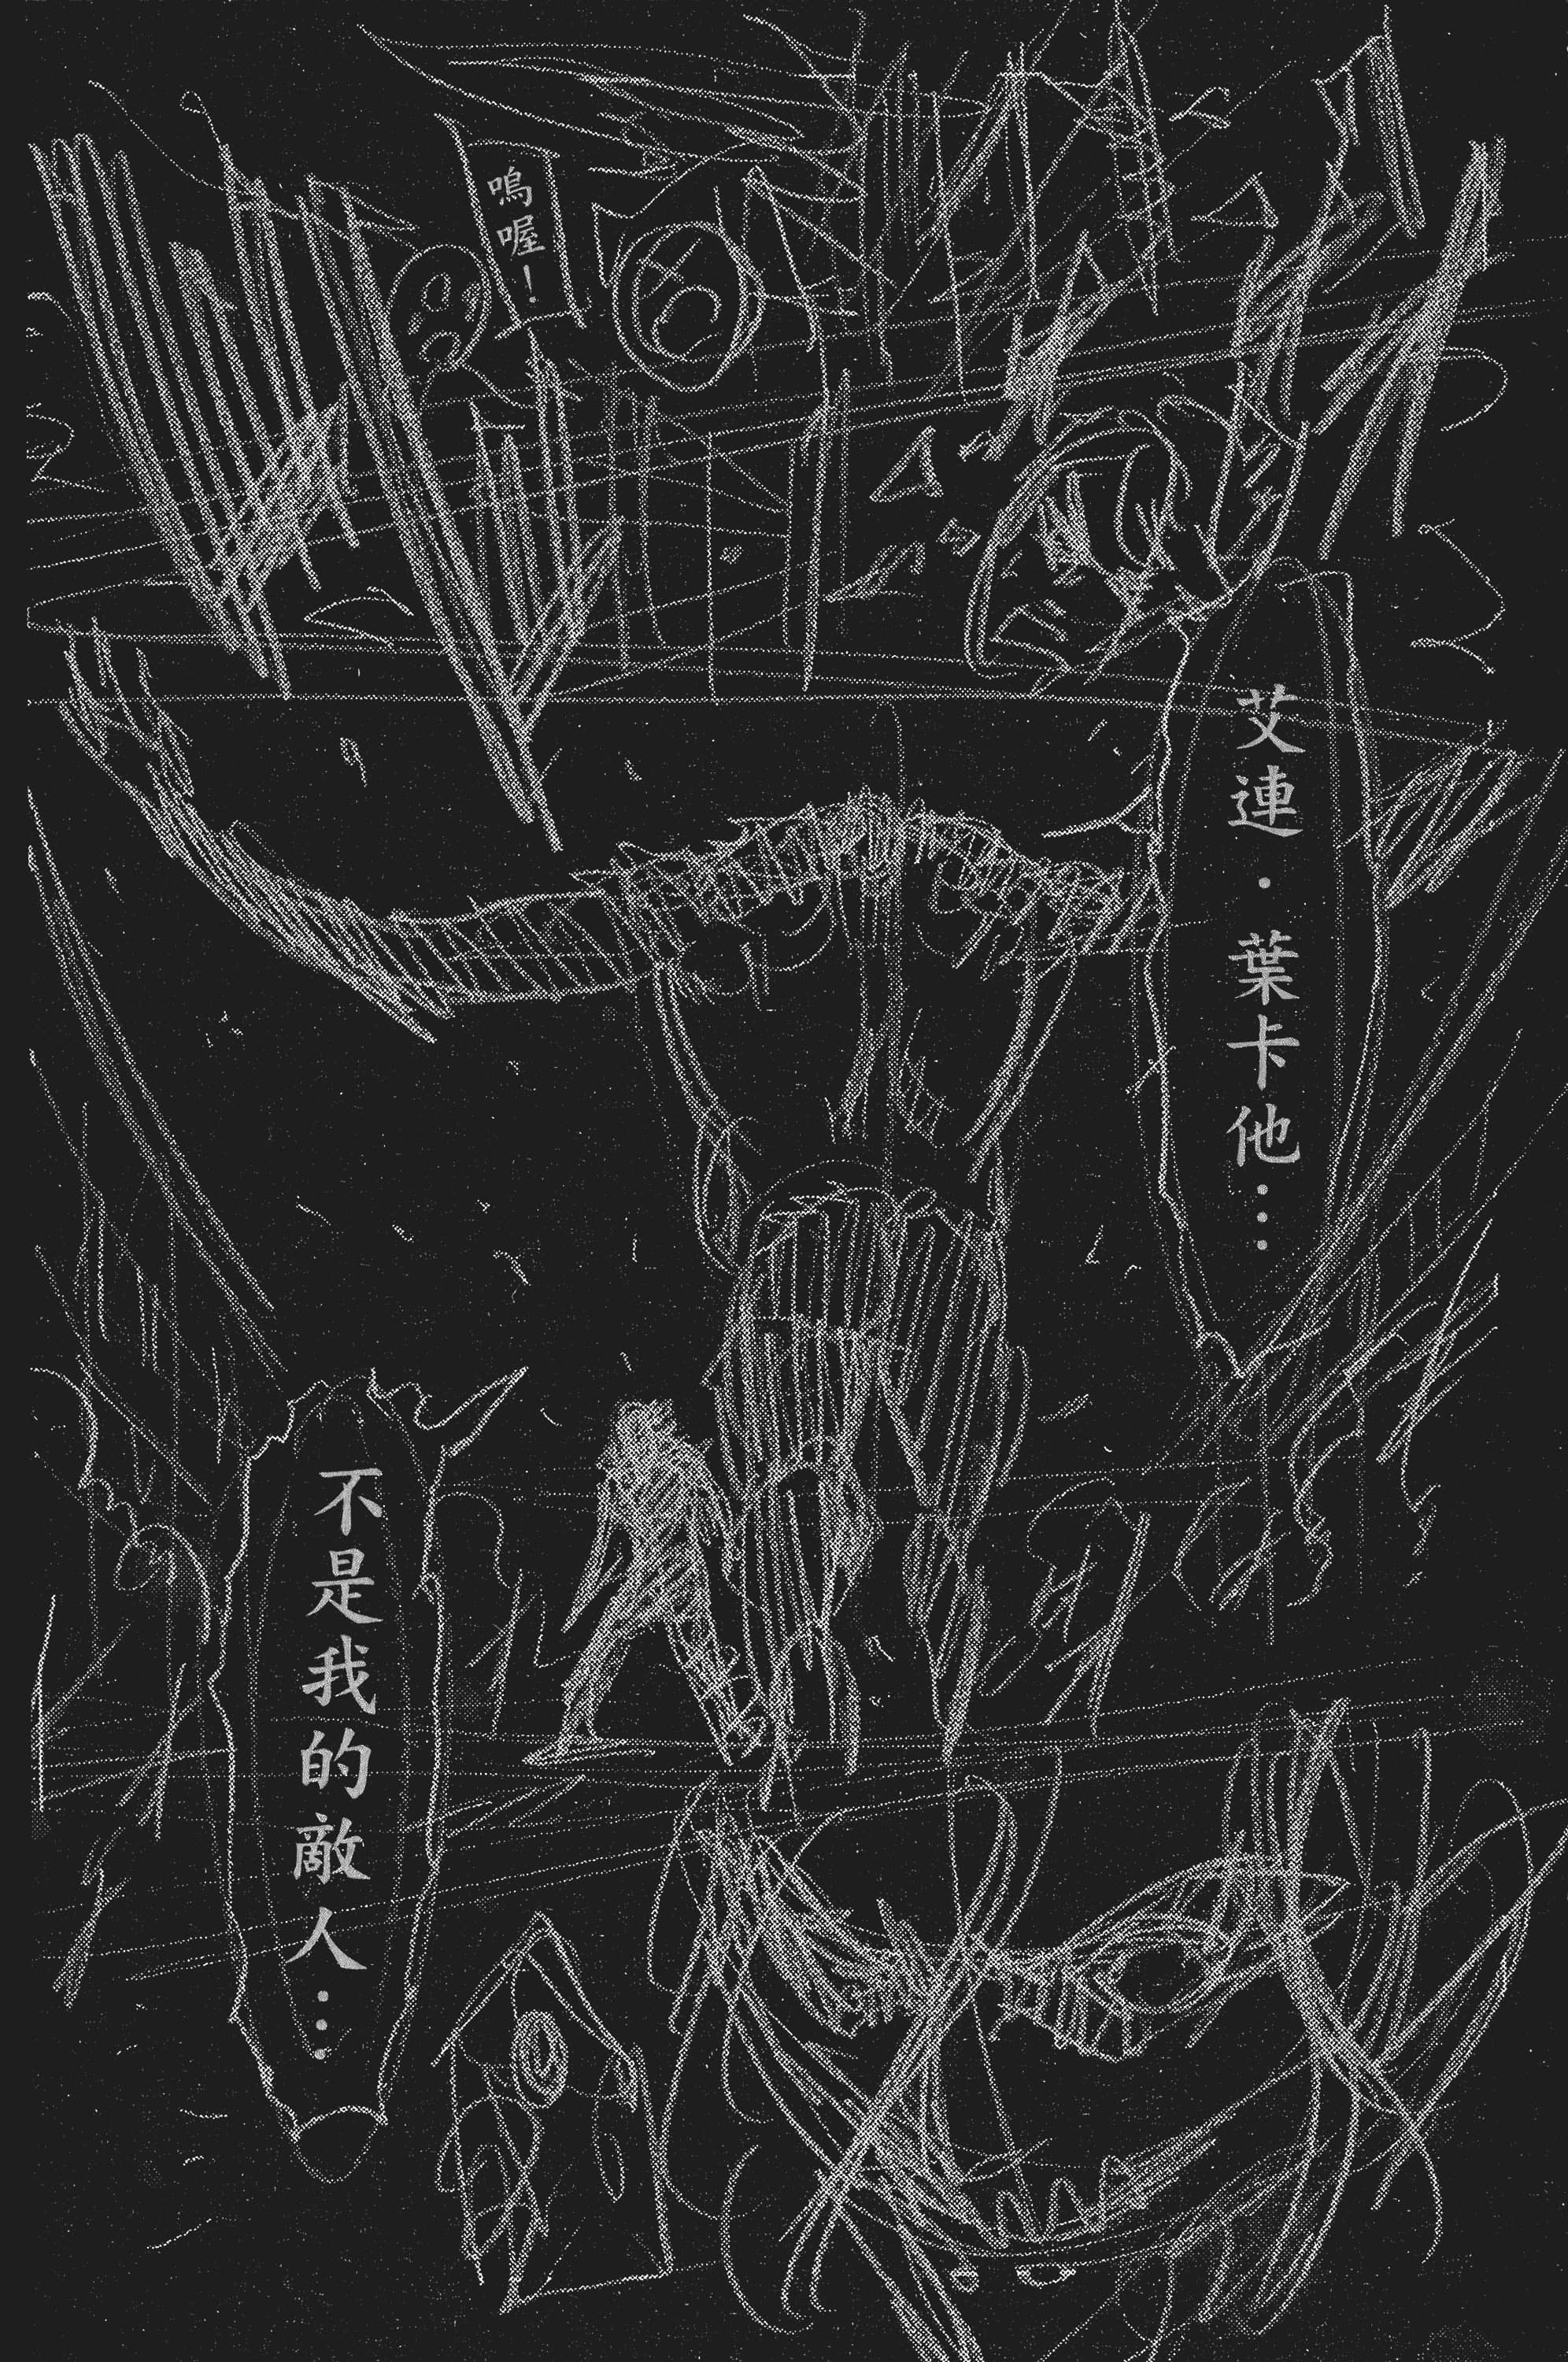 嗚喔！
艾連・葉卡他⋯
不是我的敵人⋯